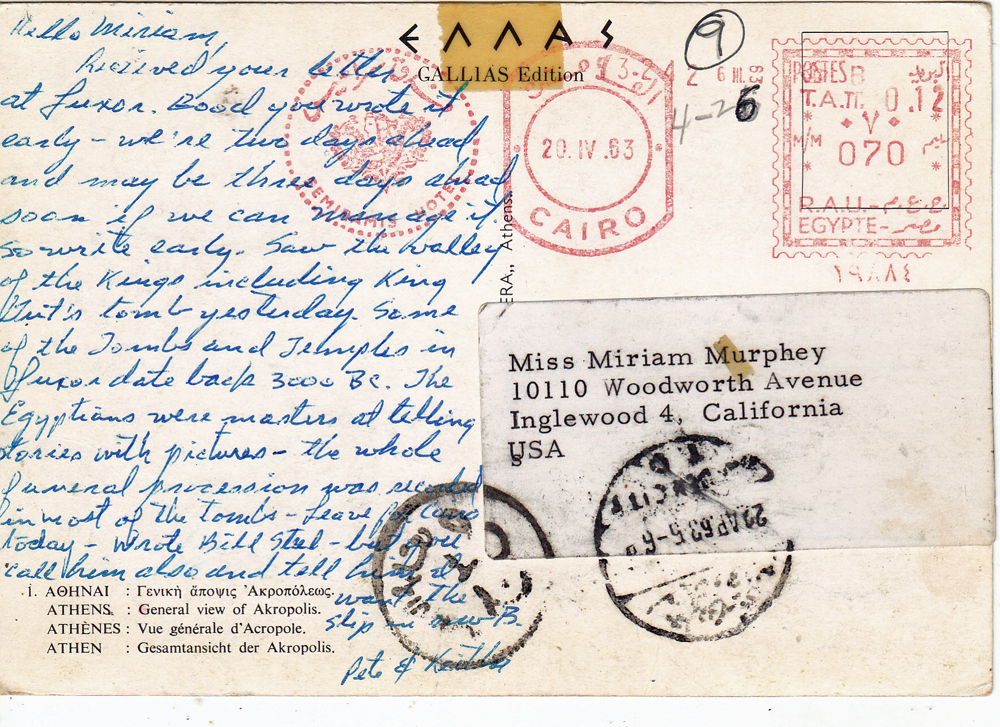 Hello Miriam,
Recieved your letter
at Luxor. Good you wrote it
early - we're two days ahead
and may be three days ahead
soon if we can manage it
so write early. Saw the valley
of the Kings including King
Tut's tomb yesterday. Some
of the Tombs and Temples in
Luxor date back 3000 Bc. The
Egyptians were masters at telling
stories with pictures - the whole
funeral procession was
in most of the tombs - Leave for
today - Wrote Bill - but you
call him also and tell him I
want the
slip in
Pete &
ΕΛΛΑΣ
GALLIAS Edition
9
4-2
6
SEMIRAMIS HOTEL
20.IV.63
CAIRO
6 III 63
POSTES
T.A.Π. 0.12
٠٧٠
M/M
070
R.A.U.
EGYPTE- مصر
١٩٨٨٤
Athens.
Miss Miriam Murphey
10110 Woodworth Avenue
Inglewood 4, California
USA
22AP.63.5-6
1. ΑΘΗΝΑΙ : Γενική ἄποψις Ἀκροπόλεως.
ATHENS : General view of Akropolis.
ATHÈNES : Vue générale d'Acropole.
ATHEN : Gesamtansicht der Akropolis.